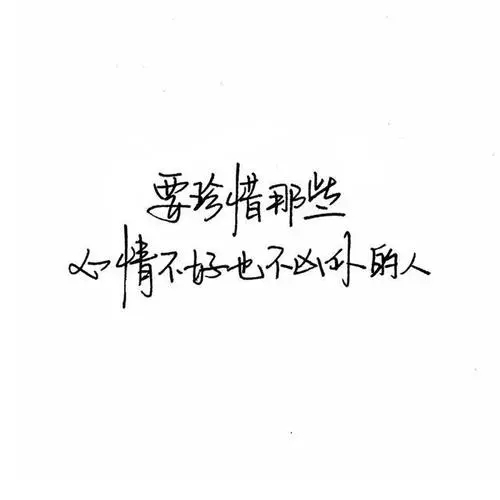 要珍惜那些
心情不好也不凶你的人